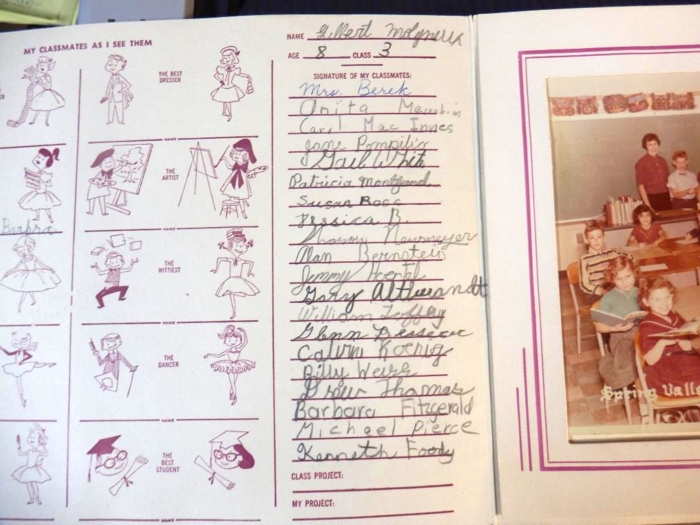 MY CLASSMATES AS I SEE THEM
THE BEST DRESSER
NAME
THE ARTIST
NAME
Barbra
THE WITTIEST
NAME
THE DANCER
NAME
THE BEST STUDENT
NAME
NAME Gilbert
AGE 8 CLASS 3
SIGNATURE OF MY CLASSMATES:
Mrs. Berek
Anita
Carol Mac Innes
Jane Pompilio
Gail
Patricia
Susan Ross
Jessica B.
Sharon Neumeyer
Alan Bernstein
Jimmy
Gary
William
Glenn
Calvin Koenig
Billy Weiss
Drew Thomas
Barbara Fitzgerald
Michael Pierce
Kenneth Foody
CLASS PROJECT:
MY PROJECT:
Spring Valle